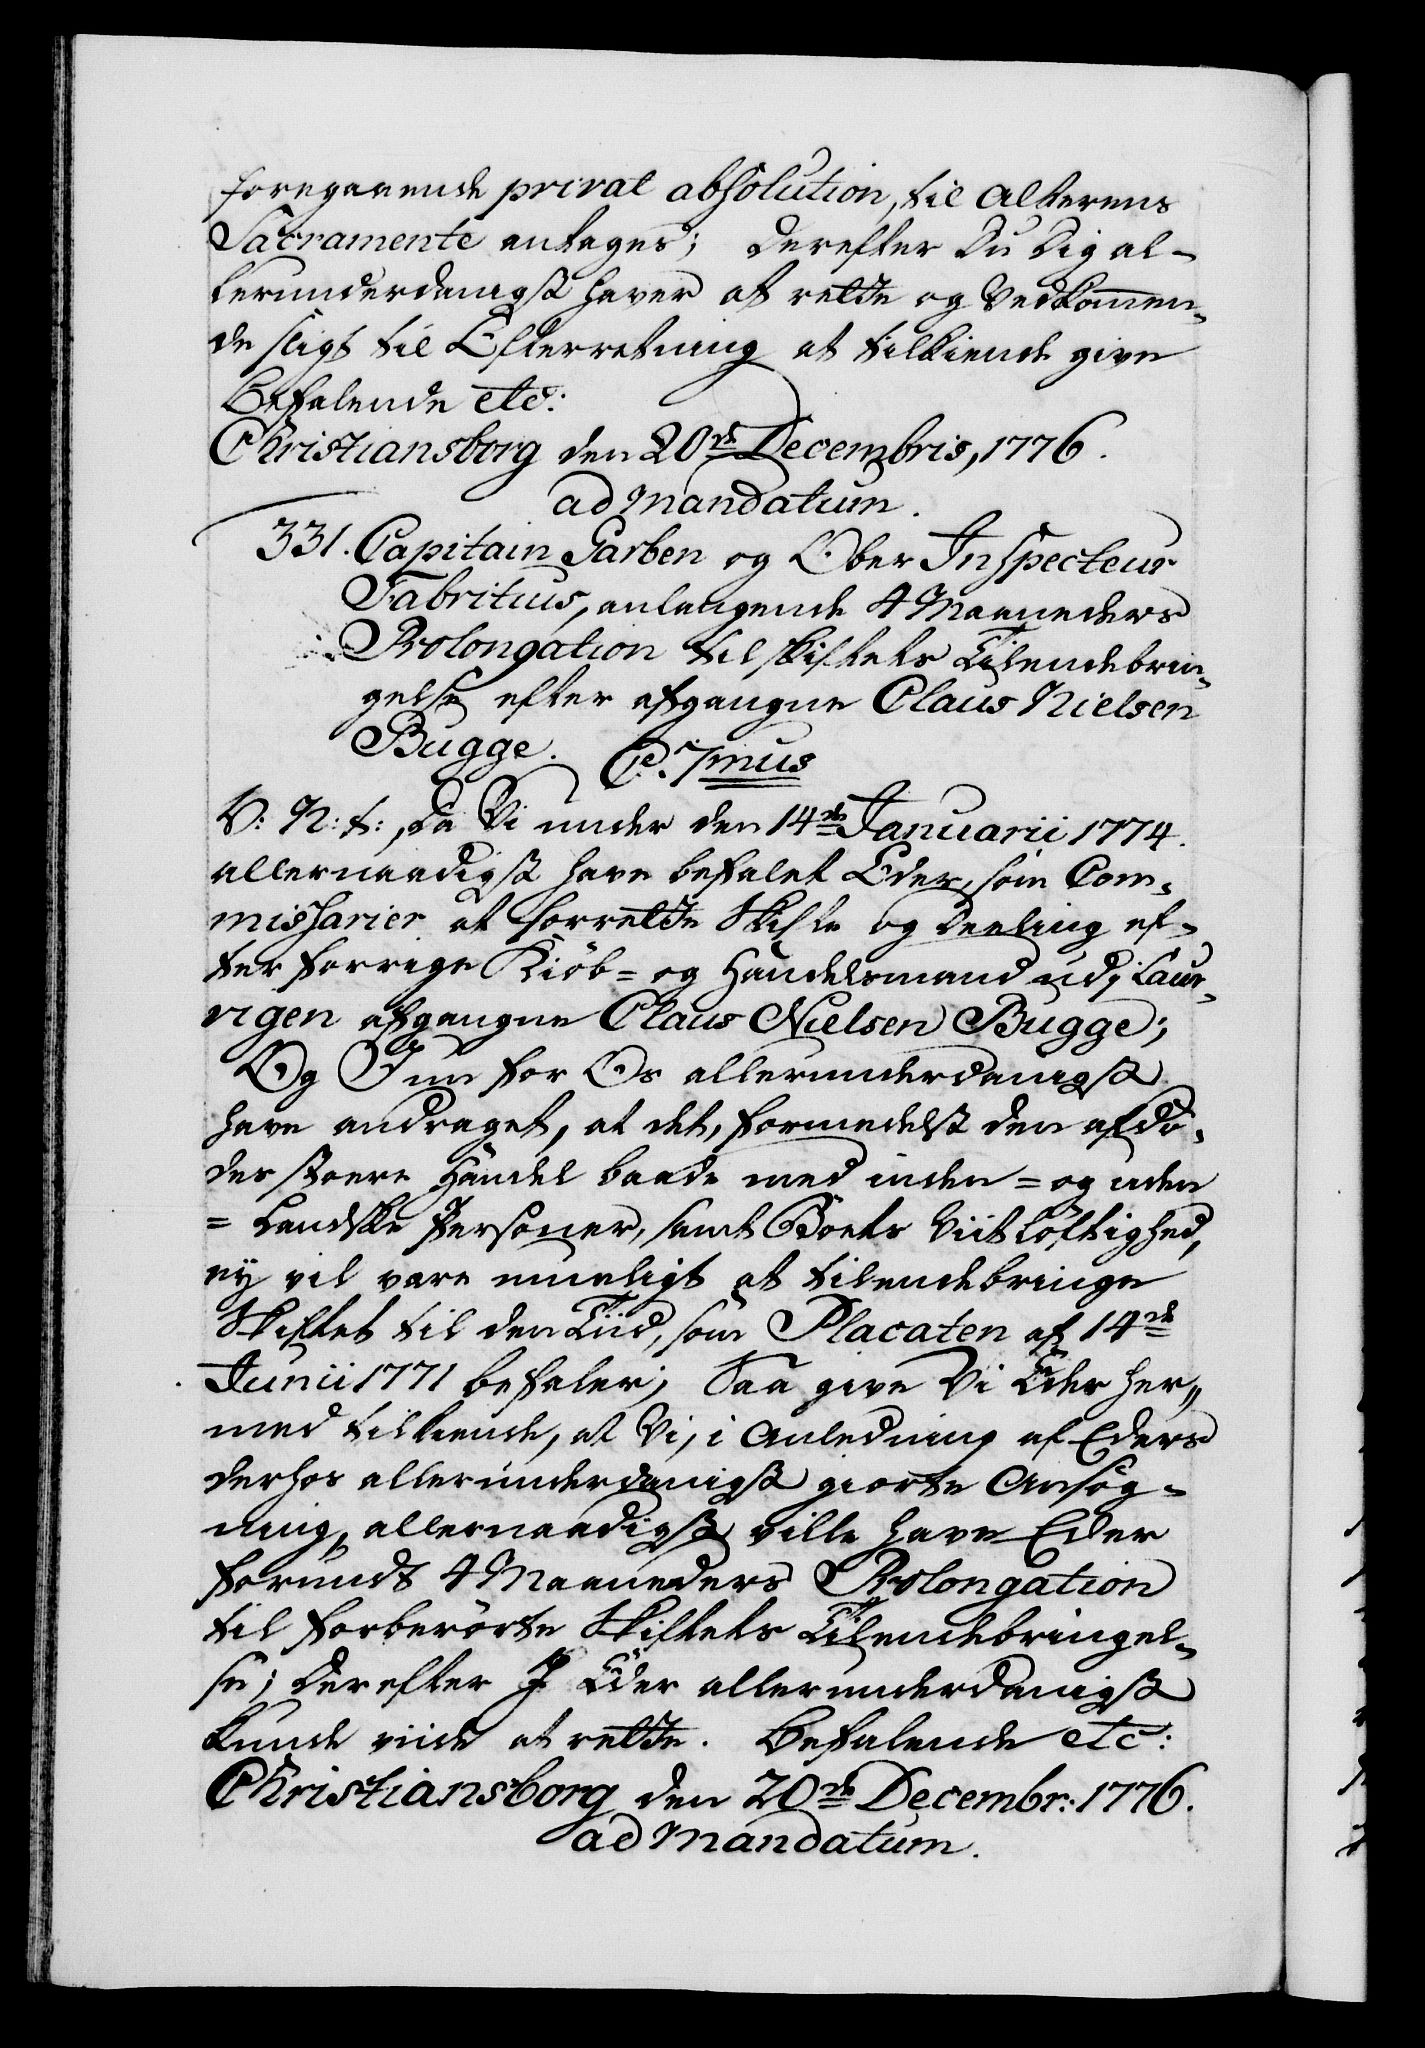 foregaaende privat absolution, til Alterens
Sacramente antages; Derefter Du Dig al-
lerunderdanigst haver at rette og Vedkom̄en-
de sligt til Efterretning at tilkiende give
Befalende etc:
Christiansborg den 20de Decembris, 1776.
ad Mandatum.
331. Capitain Garben og Ober Inspecteur
Fabritius, anlangende 4 Maaneders
Prolongation til Skiftets Tilendebrin-
gelse efter afgangne Claus Nielsen
Bugge. C. 7mus
V: N: t:, Da Vi under den 14de Januarii 1774.
allernaadigst have befalet Eder, som Com-
missarier at forrette Skifte og Deeling ef-
ter forrige Kiöb= og Handelsmand udj Laur-
vigen afgangne Claus Nielsen Bugge;
Og I nu for Os allerunderdanigst
have andraget, at det, formedelst den afdö-
des stoere Handel baade med inden= og uden
= Landske Personer, samt Boets Viitlöftighed,
ey vil være mueligt at tilendebringe
Skiftet til den Tiid, som Placaten af 14de
Junii 1771 befaler; Saa give Vi Eder her„
med tilkiende, at Vi, i Anledning af Eders
derhos allerunderdanigst giorte Ansög-
ning, allernaadigst ville have Eder
forundt 4 Maaneders Prolongation
til forberörte Skiftets Tilendebringel-
se; Derefter I Eder allerunderdanigst
kunde viide at rette. Befalende etc:
Christiansborg den 20de Decembr: 1776.
ad Mandatum.